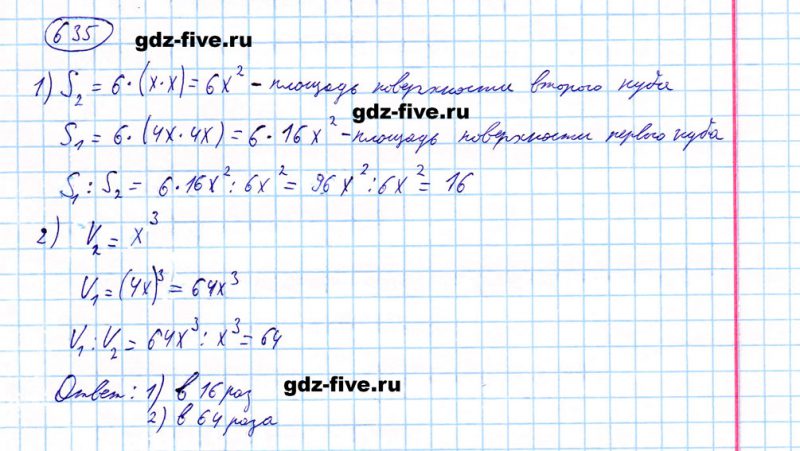 635
gdz-five.ru
1) S₂ = 6·(x·x) = 6x² - площадь поверхности второго куба
gdz-five.ru
S₁ = 6·(4x·4x) = 6·16x² - площадь поверхности первого куба
S₁ : S₂ = 6·16x² : 6x² = 96x² : 6x² = 16
2) V₂ = x³
V₁ = (4x)³ = 64x³
V₁ : V₂ = 64x³ : x³ = 64
Ответ: 1) в 16 раз
gdz-five.ru
2) в 64 раза